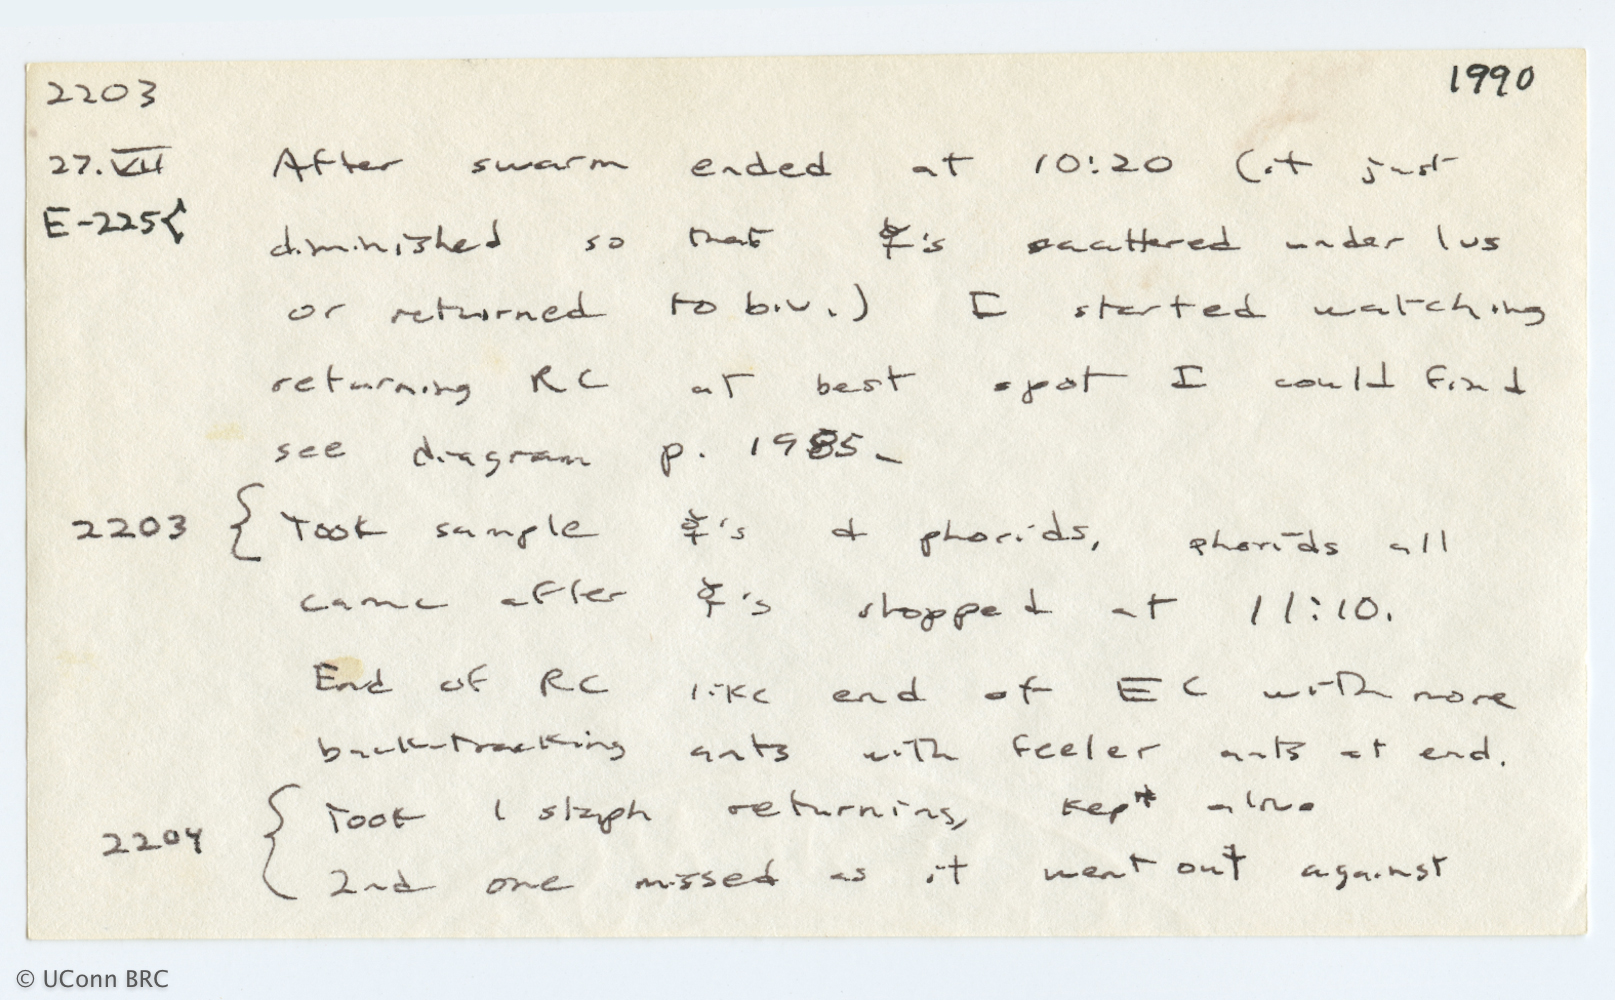 2203
1990
27.VII After swarm ended at 10:20 (it just
E-225{ diminished so that ☿'s scattered under lvs
or returned to biv.) I started watching
returning RC at best spot I could find
see diagram p. 1985—
2203 { Took sample ☿'s & phorids, phorids all
came after ☿'s stopped at 11:10.
End of RC like end of EC with more
back-tracking ants with feeler ants at end.
2204 { Took 1 staph returning, kept alive
2nd one missed as it went out against
© UConn BRC